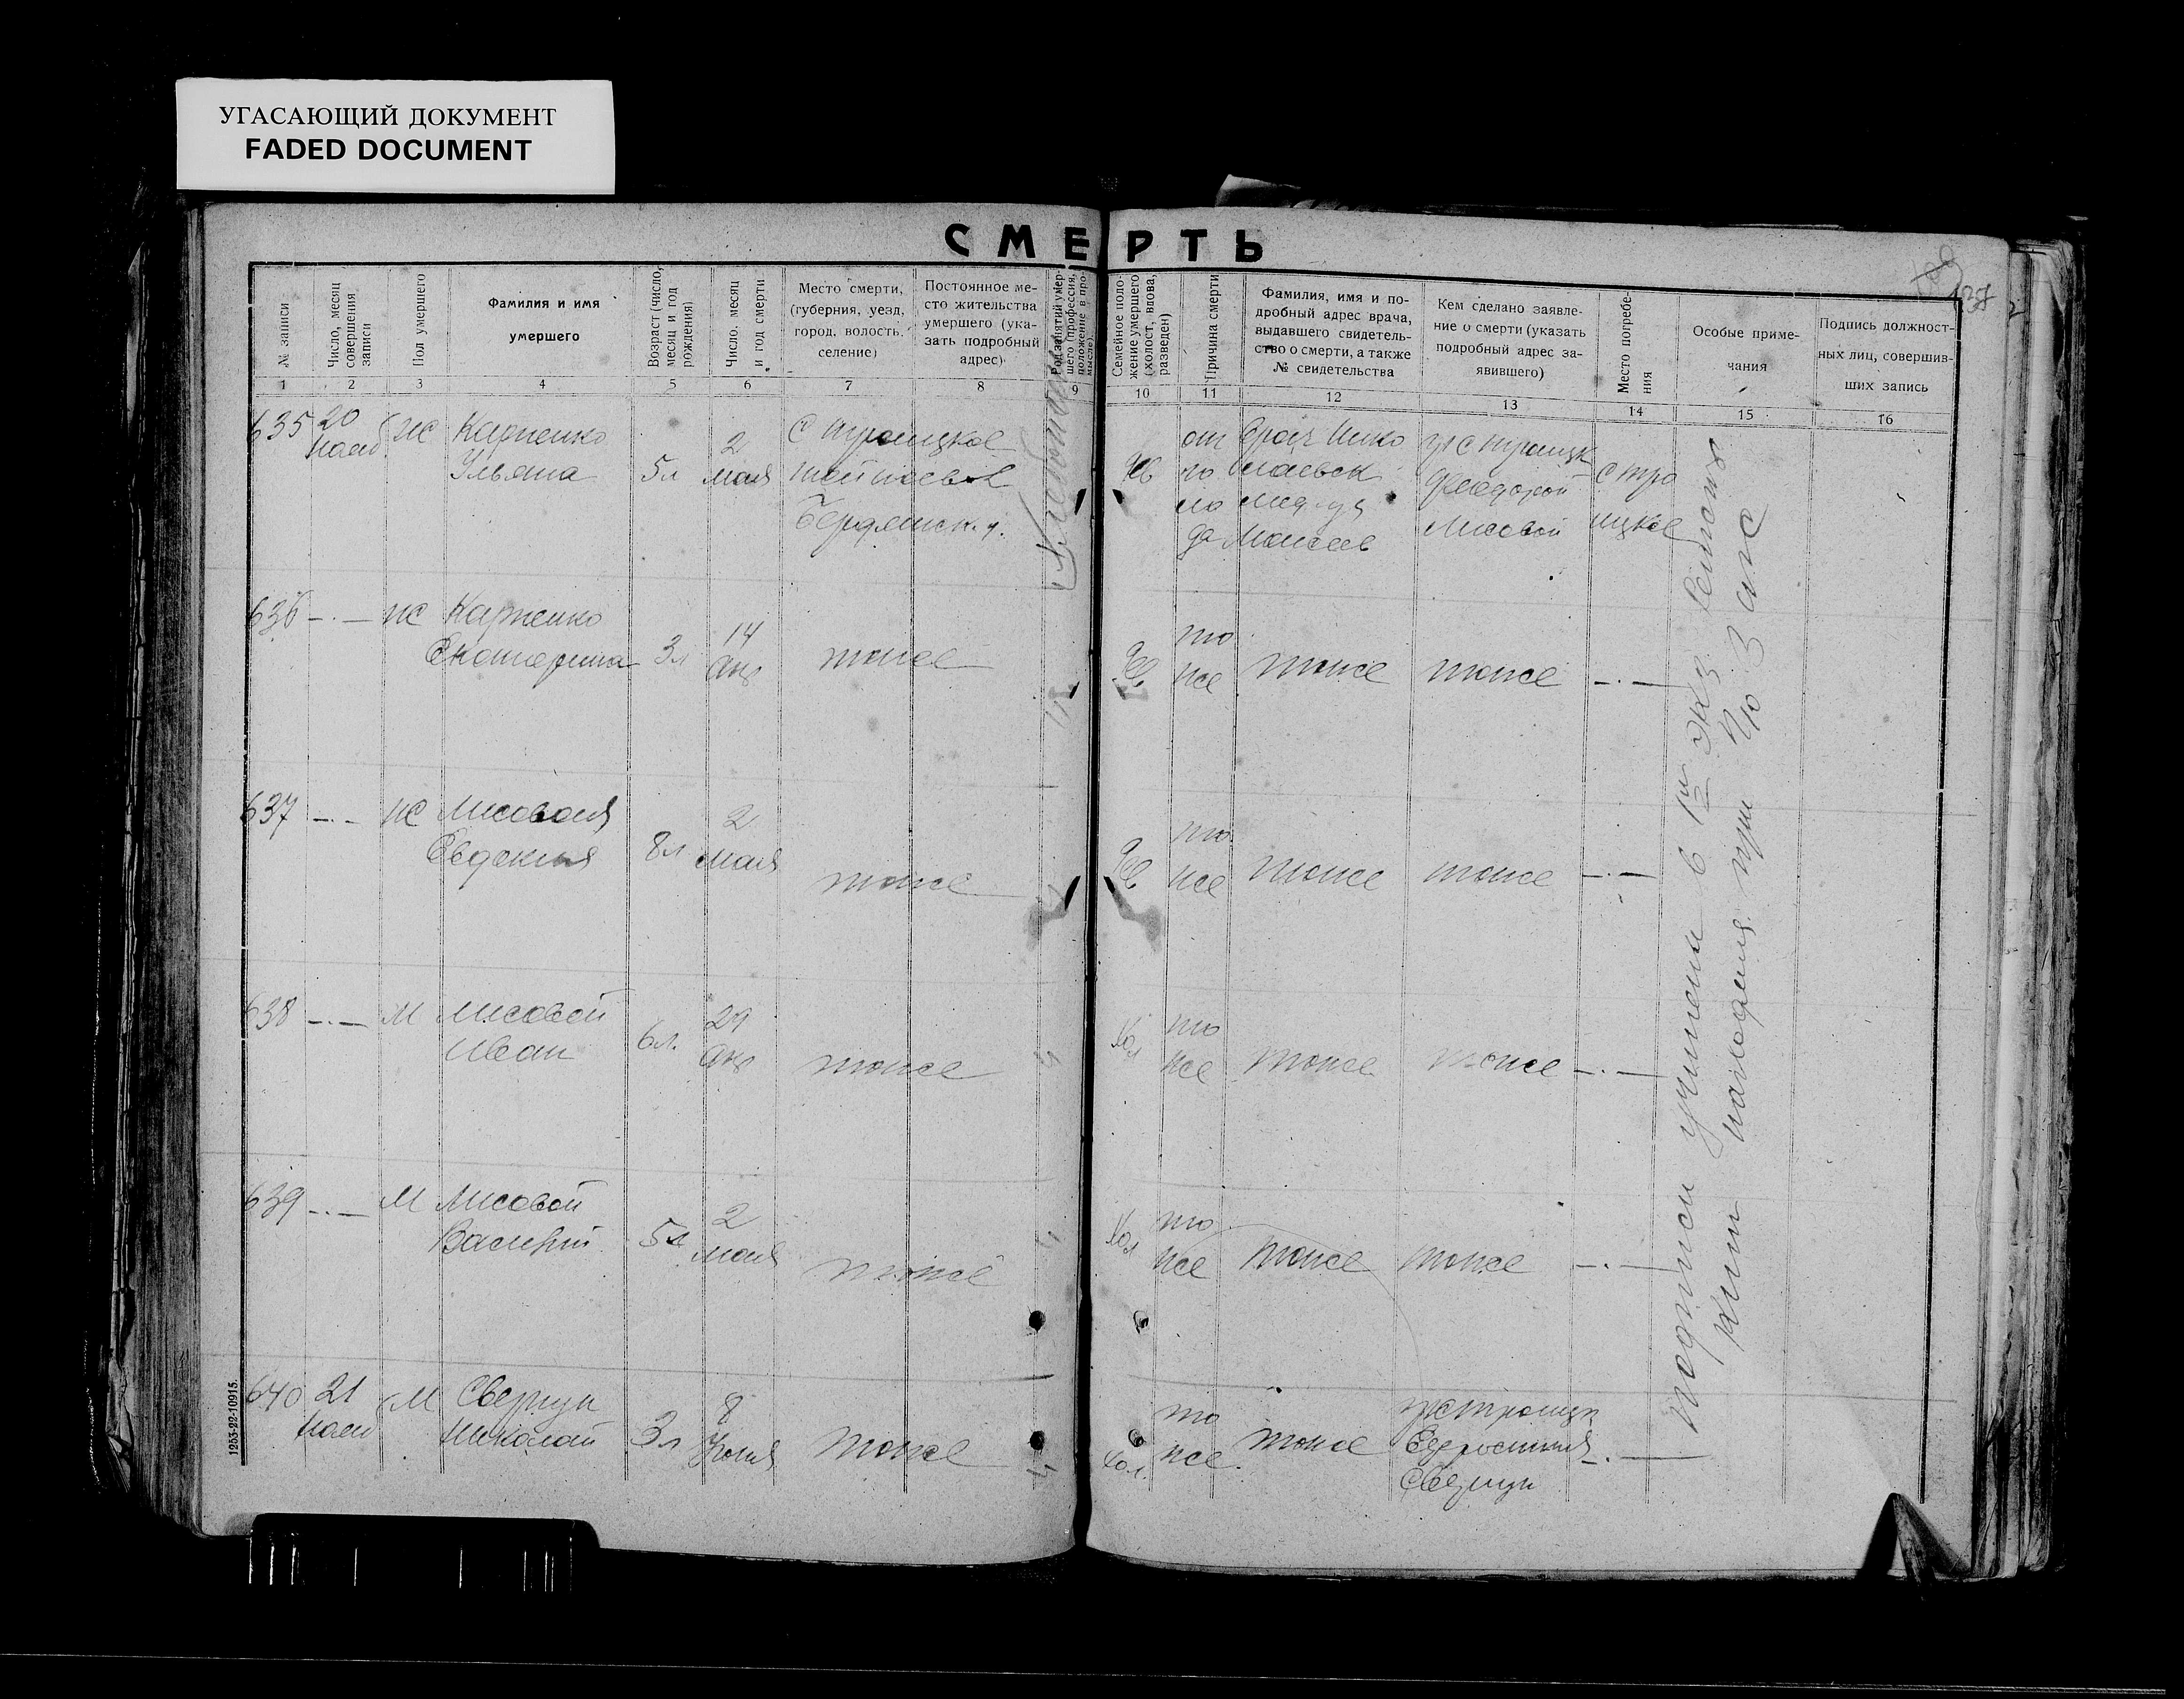 УГАСАЮЩИЙ ДОКУМЕНТ
FADED DOCUMENT
СМЕРТЬ
№ записи
Число, месяц совершения записи
Пол умершего
Фамилия и имя умершего
Возраст (число, месяц и год рождения)
Число, месяц и год смерти
Место смерти, (губерния, уезд, город, волость, селение)
Постоянное место жительства умершего (указать подробный адрес)
Род занятий умершего (профессия, положение в промысле)
Семейное положение умершего (холост, вдова, разведен)
Причина смерти
Фамилия, имя и подробный адрес врача, выдавшего свидетельство о смерти, а также № свидетельства
Кем сделано заявление о смерти (указать подробный адрес заявившего)
Место погребения
Особые примечания
Подпись должностных лиц, совершивших запись
1 2 3 4 5 6 7 8 9 10 11 12 13 14 15 16
635 20 нояб. ж Карпенко Ульяна 5л 2 мая С Троицкое Бердянск. у.
дев от голода Врач Моисеев гр с Троицк Феодорой Лисовой с Троицкое
636 —·— ж Карпенко Екатерина 3л 14 янв тоже
дев. тоже тоже тоже —·—
637 —·— ж Лисовая Евдокия 8л 2 мая тоже
дев. тоже тоже тоже —·—
638 —·— м Лисовой Иван 6л. 29 янв тоже
хол тоже тоже тоже —·—
639 —·— м Лисовой Василий 5л 2 мая тоже
хол тоже тоже тоже —·—
640 21 нояб м Свергун Николай 3л 8 Июня тоже
хол. тоже тоже гр с Троицк Свергун —·—
подписи учинены в 1м экз. книги находящ. при ЗАГС
1253-22-10915.